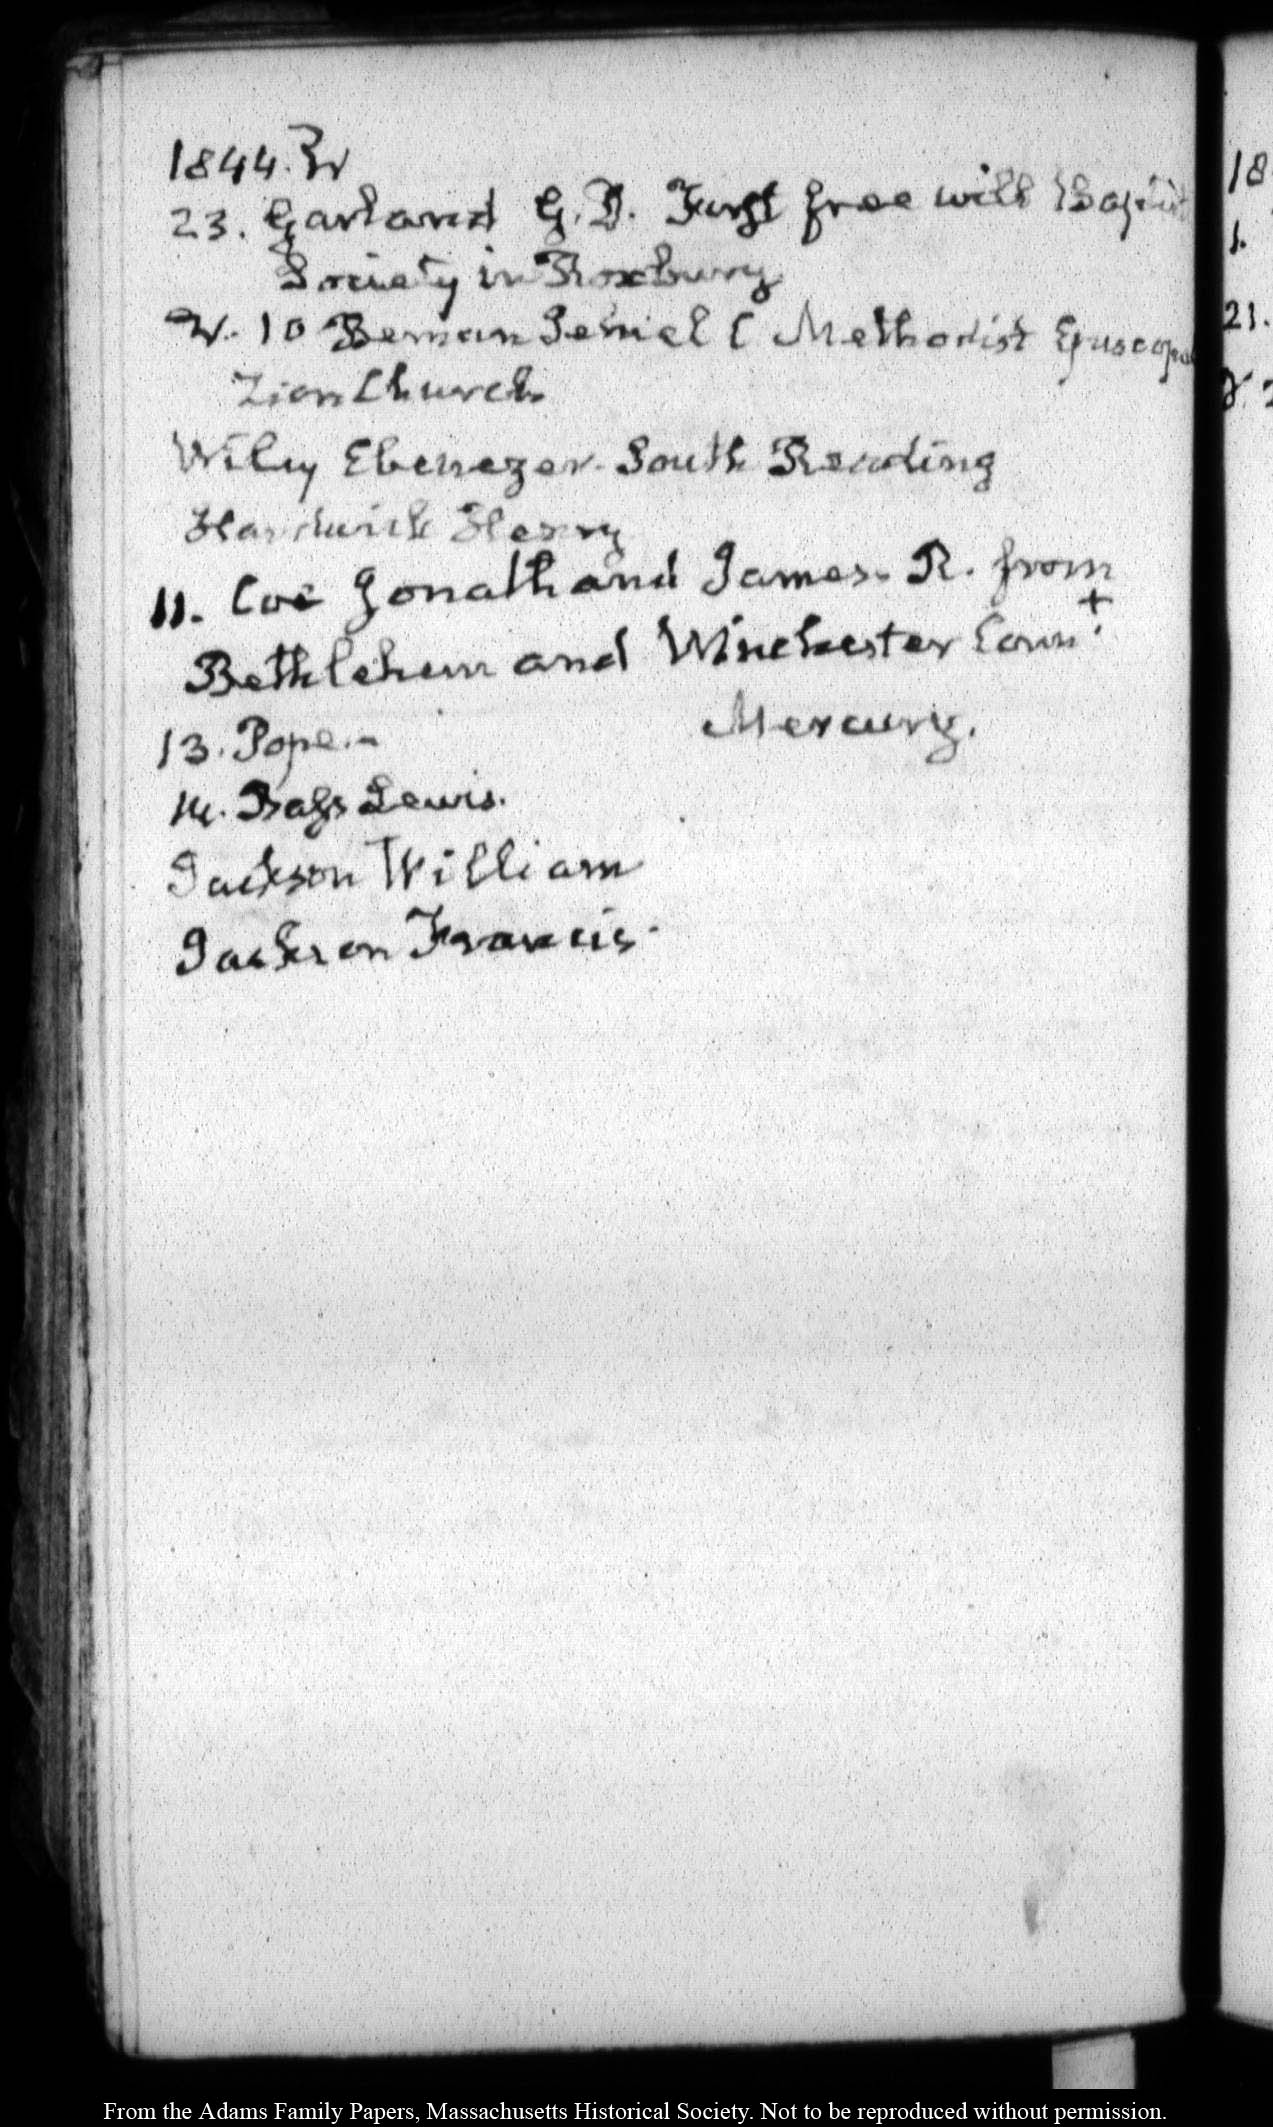 1844. IV
23. Garland G. D. First free will Baptist
Society in Roxbury
V. 10 Beman Jehiel C Methodist Episcopal
Zion Church
Wiley Ebenezer. South Reading
Hardwick Henry
11. Coe Jonath and James. R. from
Bethlehem and Winchester Conn.t
13. Pope.- Mercury.
14. Bass Lewis.
Jackson William
Jackson Francis.
18
1.
21.
V. 2
From the Adams Family Papers, Massachusetts Historical Society. Not to be reproduced without permission.